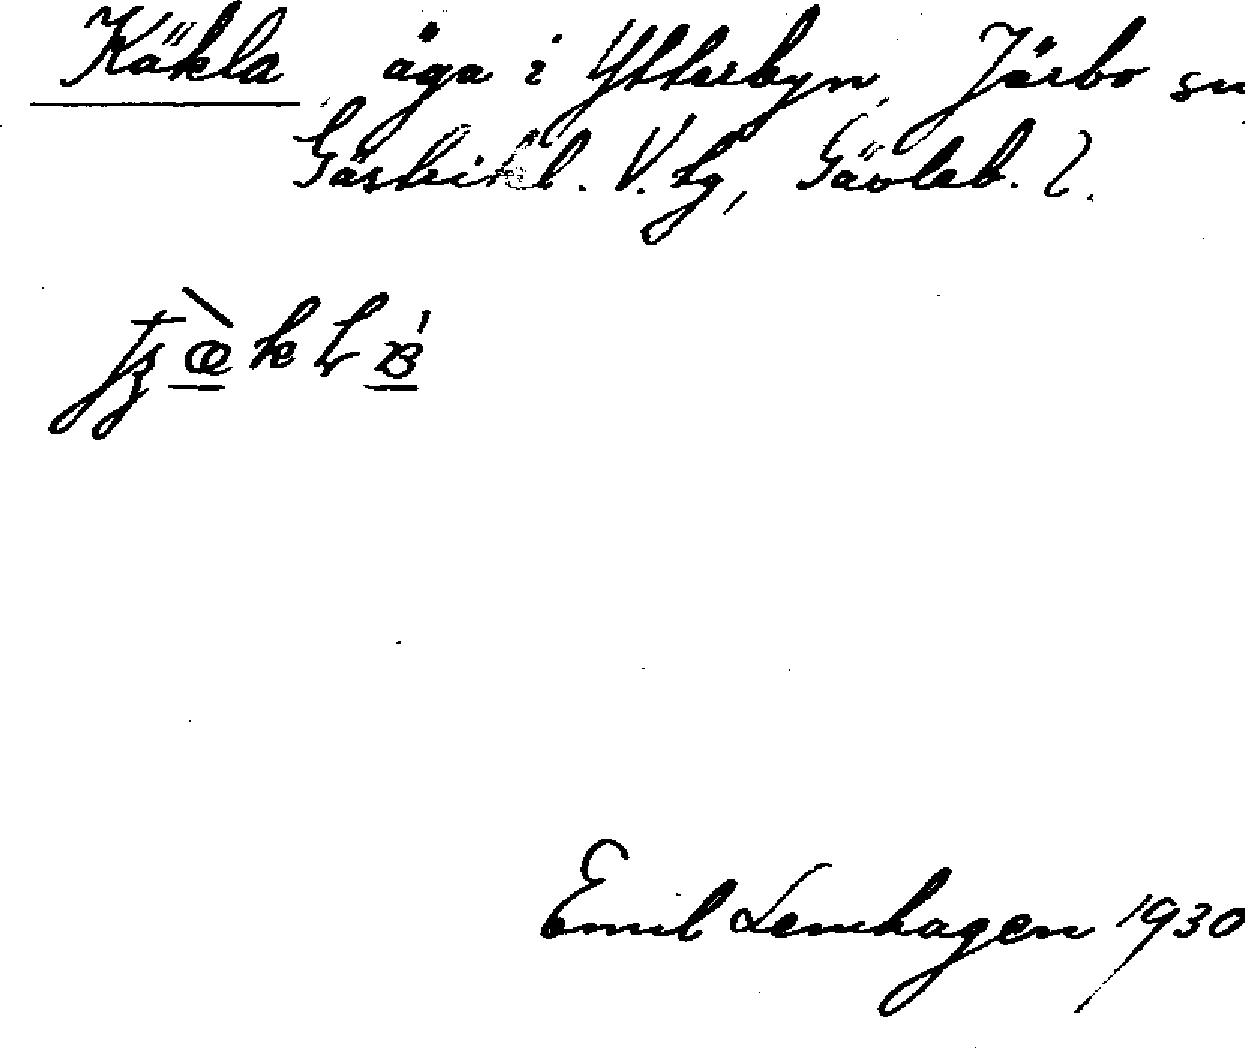 Käkla åga i Ytterbyn, Järbo sn
Gästrikl. V. tg, Gävleb. l.
Emil Lenhagen 1930